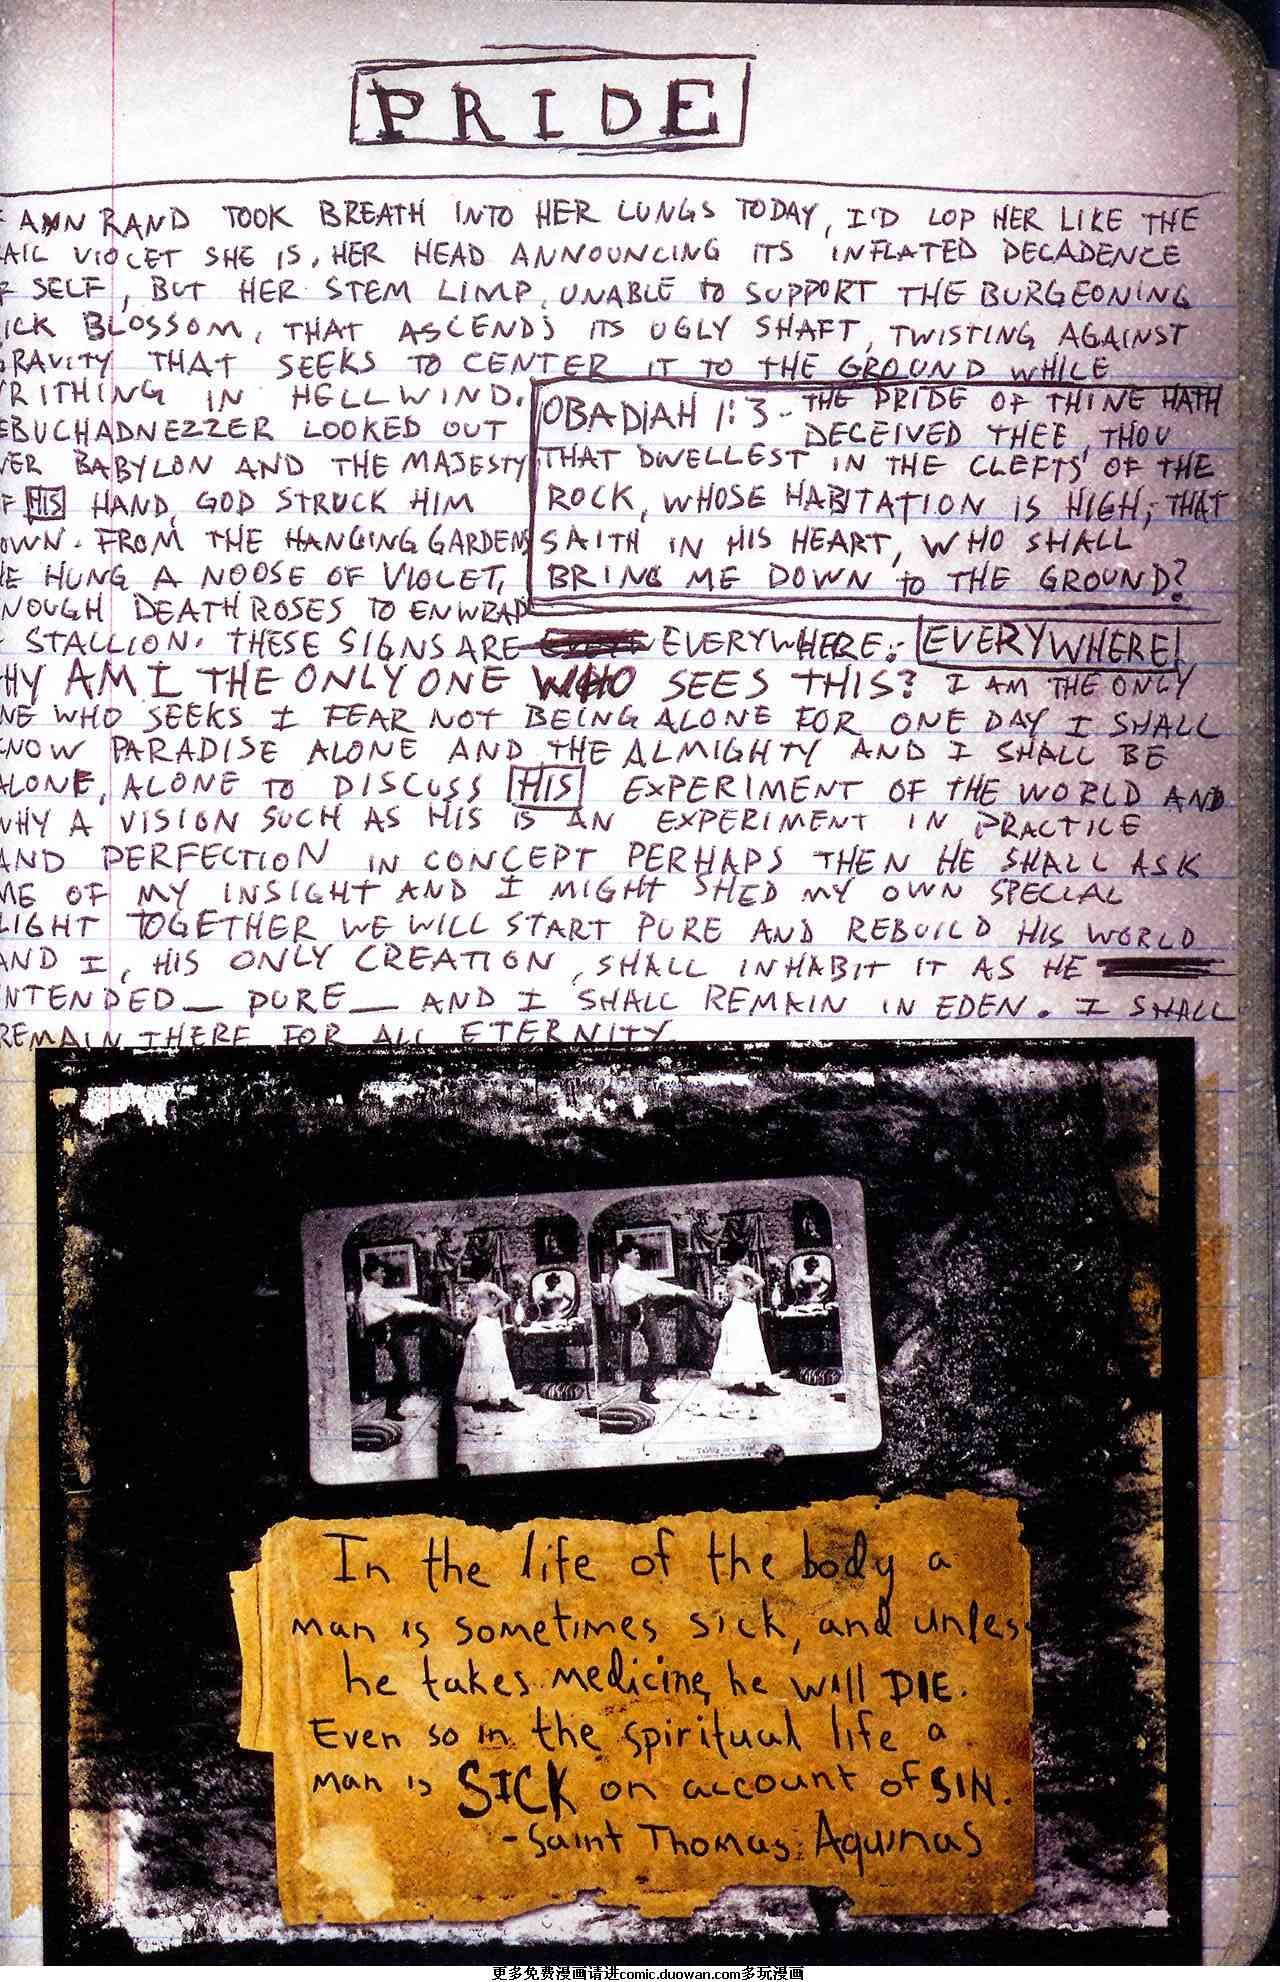 PRIDE
AYN RAND TOOK BREATH INTO HER LUNGS TODAY, I'D LOP HER LIKE THE
AIL VIOLET SHE IS, HER HEAD ANNOUNCING ITS INFLATED DECADENCE
F SELF, BUT HER STEM LIMP, UNABLE TO SUPPORT THE BURGEONING
ICK BLOSSOM, THAT ASCENDS ITS UGLY SHAFT, TWISTING AGAINST
GRAVITY THAT SEEKS TO CENTER IT TO THE GROUND WHILE
RITHING IN HELLWIND.
EBUCHADNEZZER LOOKED OUT
VER BABYLON AND THE MAJESTY
F HIS HAND, GOD STRUCK HIM
OWN. FROM THE HANGING GARDENS
HE HUNG A NOOSE OF VIOLET,
NOUGH DEATH ROSES TO ENWRAP
OBADIAH 1:3 - THE PRIDE OF THINE HATH
DECEIVED THEE, THOU
THAT DWELLEST IN THE CLEFTS OF THE
ROCK, WHOSE HABITATION IS HIGH; THAT
SAITH IN HIS HEART, WHO SHALL
BRING ME DOWN TO THE GROUND?
STALLION. THESE SIGNS ARE EVERYWHERE. EVERYWHERE!
HY AM I THE ONLY ONE WHO SEES THIS? I AM THE ONLY
NE WHO SEEKS I FEAR NOT BEING ALONE FOR ONE DAY I SHALL
KNOW PARADISE ALONE AND THE ALMIGHTY AND I SHALL BE
ALONE, ALONE TO DISCUSS HIS EXPERIMENT OF THE WORLD AND
WHY A VISION SUCH AS HIS IS AN EXPERIMENT IN PRACTICE
AND PERFECTION IN CONCEPT PERHAPS THEN HE SHALL ASK
ME OF MY INSIGHT AND I MIGHT SHED MY OWN SPECIAL
LIGHT TOGETHER WE WILL START PURE AND REBUILD HIS WORLD
AND I, HIS ONLY CREATION, SHALL INHABIT IT AS HE
INTENDED — PURE — AND I SHALL REMAIN IN EDEN. I SHALL
REMAIN THERE FOR ALL ETERNITY.
In the life of the body a
man is sometimes sick, and unles
he takes medicine, he will DIE.
Even so in the spiritual life a
man is SICK on account of SIN.
- Saint Thomas Aquinas
更多免费漫画请进comic.duowan.com多玩漫画